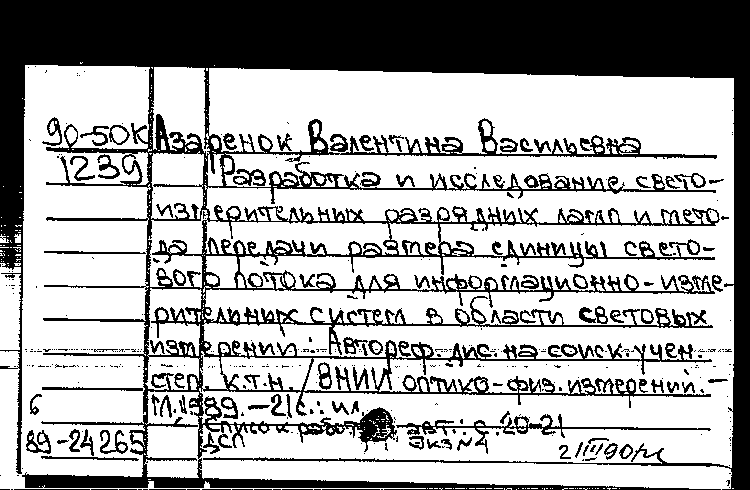 90-50К Азаренок, Валентина Васильевна
1239 Разработка и исследование свето-
измерительных разрядных ламп и мето-
да передачи размера единицы свето-
вого потока для информационно-изме-
рительных систем в области световых
измерений : Автореф. дис. на соиск. учен.
степ. к.т.н. / ВНИИ оптико-физ. измерений. -
6 М., 1989. - 21 с. : ил.
Список работ авт.: с. 20-21
89-24265 ДСП Экз №4 2/III 90